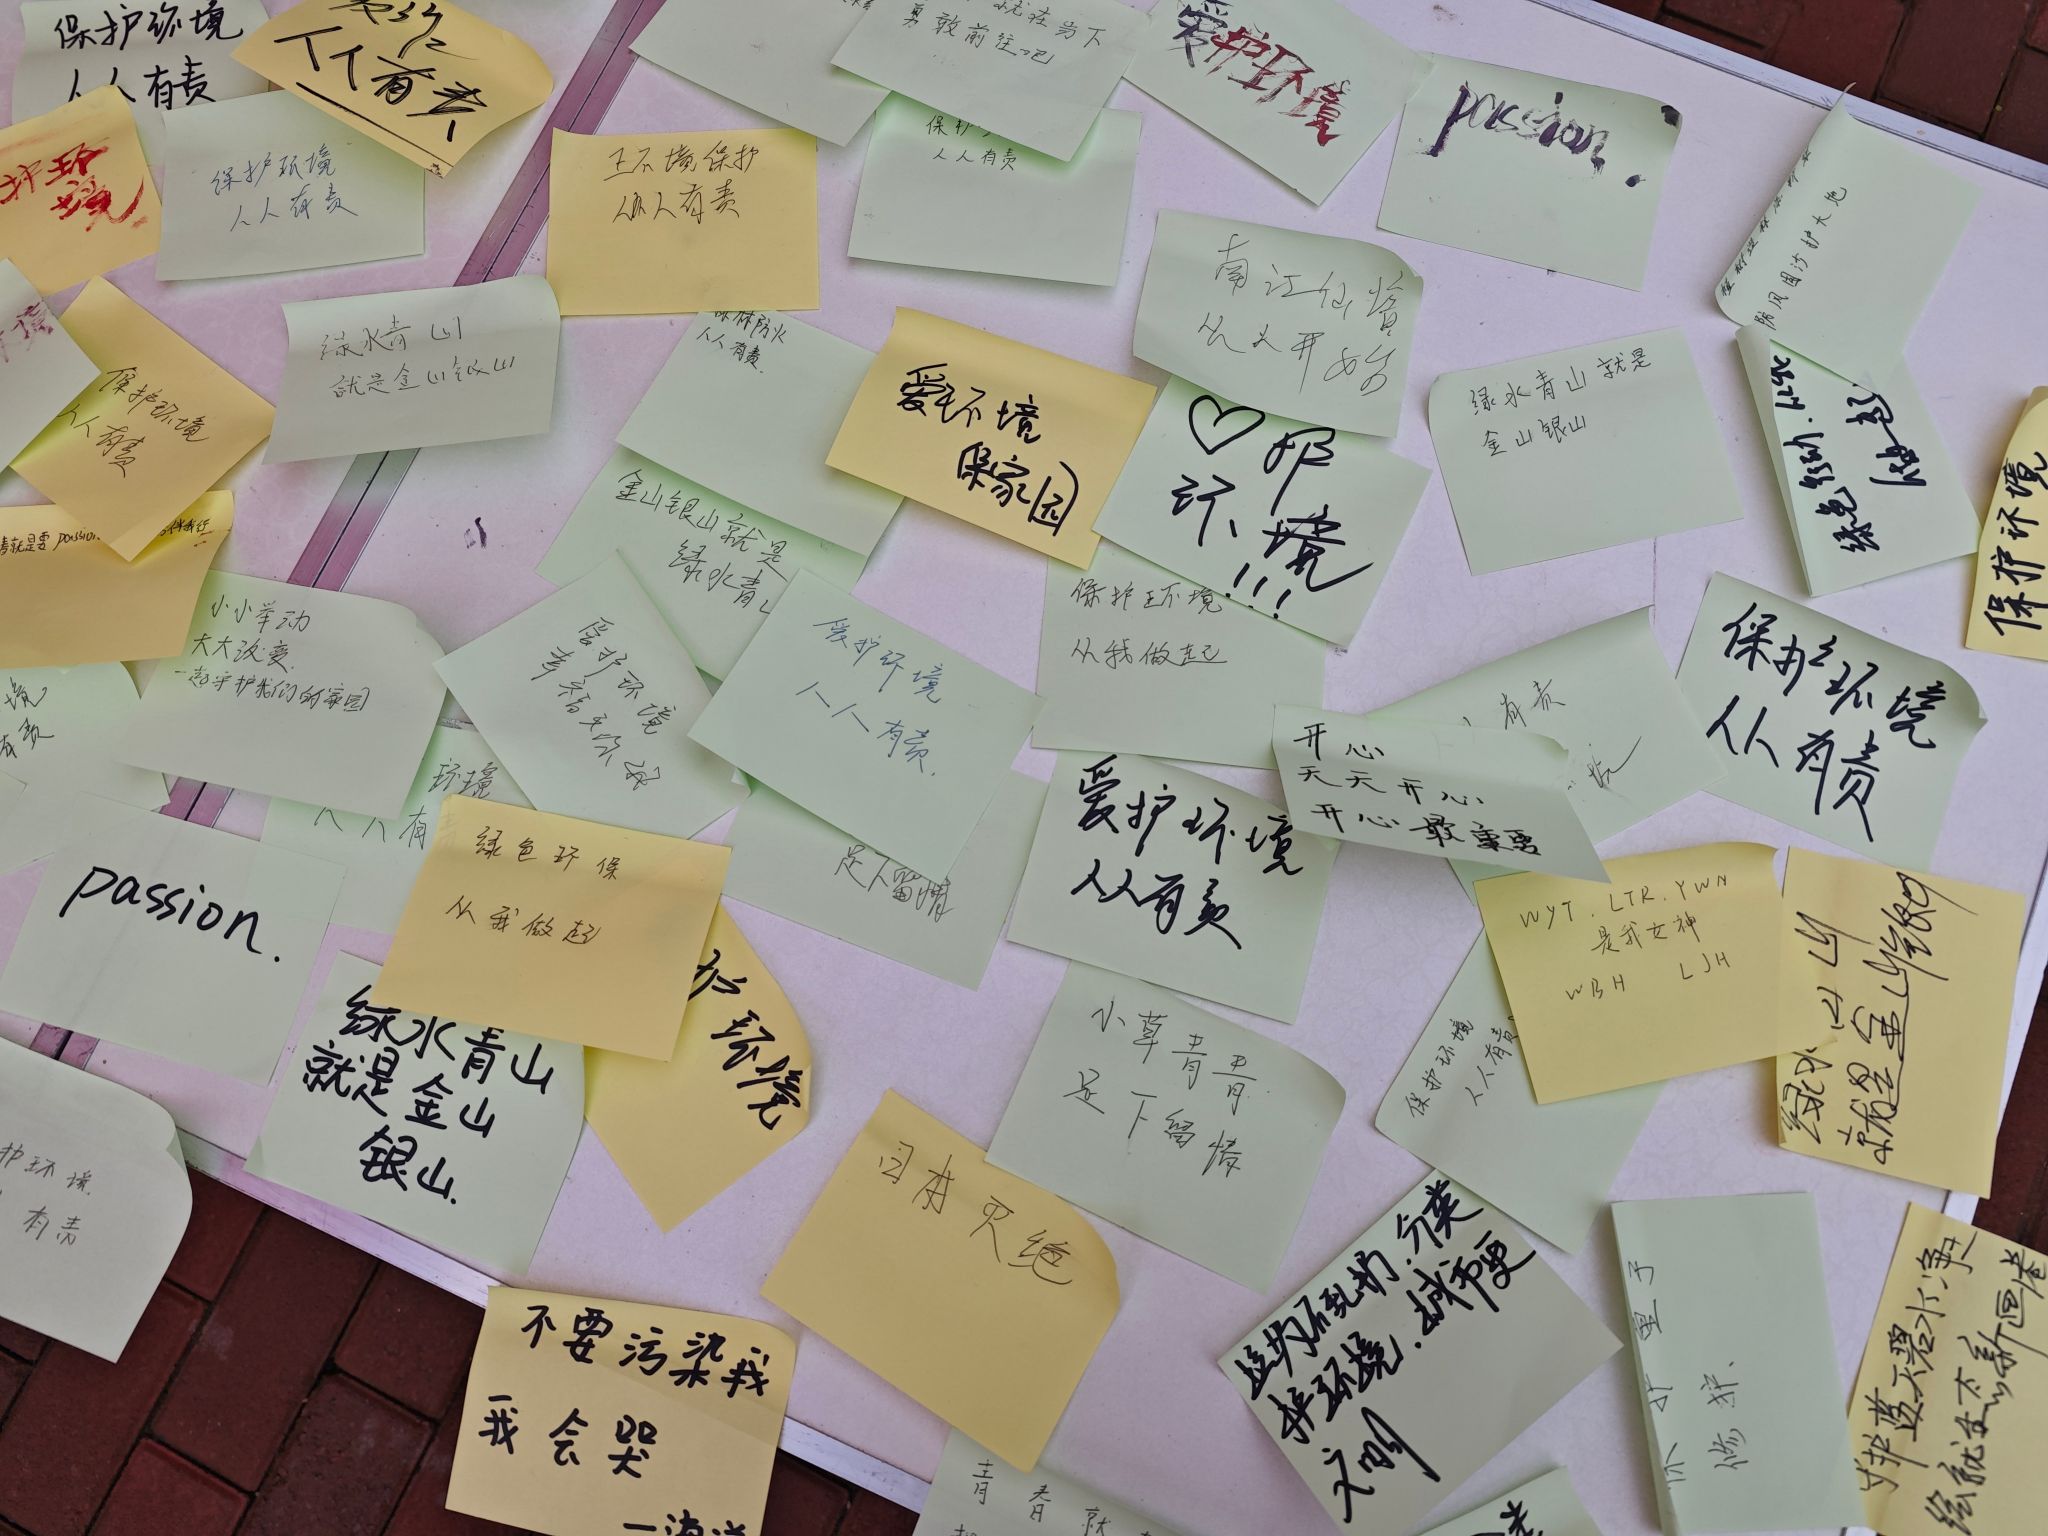 保护环境
人人有责
人人有责
勇敢前往吧
爱护环境
passion.
护环境
保护环境
人人有责
环境保护
人人有责
人人有责
防风固沙护大地
绿水青山
就是金山银山
人人有责
南江仙境
从头开始
爱环境
保家园
♡护
环境
!!!
绿水青山就是
金山银山
保护环境
保护环境
人人有责
金山银山就是
绿水青山
passion.
小小举动
大大改变
一起守护我们的家园
爱护环境
爱护环境
人人有责.
保护环境
从我做起
有责
开心
天天开心
开心最重要
保护环境
人人有责
环境
人人有
绿色环保
从我做起
足下留情
爱护环境
人人有责
WYT.LTR.YWN
是我女神
WBH LJH
绿水青山
就是金山银山
passion.
绿水青山
就是金山
银山.
环境
小草青青
足下留情
保护环境
人人有责
日本灭绝
护环境
有责
不要污染我
我会哭
垃圾不乱扔.分类
护环境.城市更
文明
守护蓝天碧水净
绘就生态新画卷
青春就